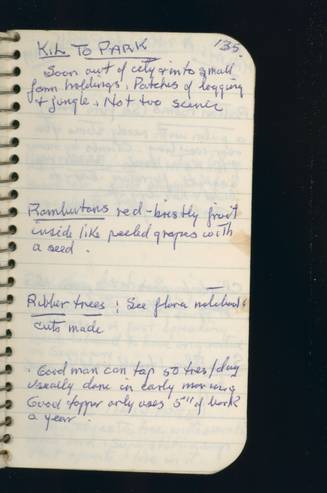 K.L. TO PARK 135.
Soon out of city & into small
farm holdings. Patches of logging
& jungle. Not too scenic
Rambutans red-bristly fruit
inside like peeled grapes with
a seed.
Rubber trees: See flora notebook
cuts made
Good man can tap 50 trees/day
usually done in early morning
Good tapper only uses 5" of bark
a year.